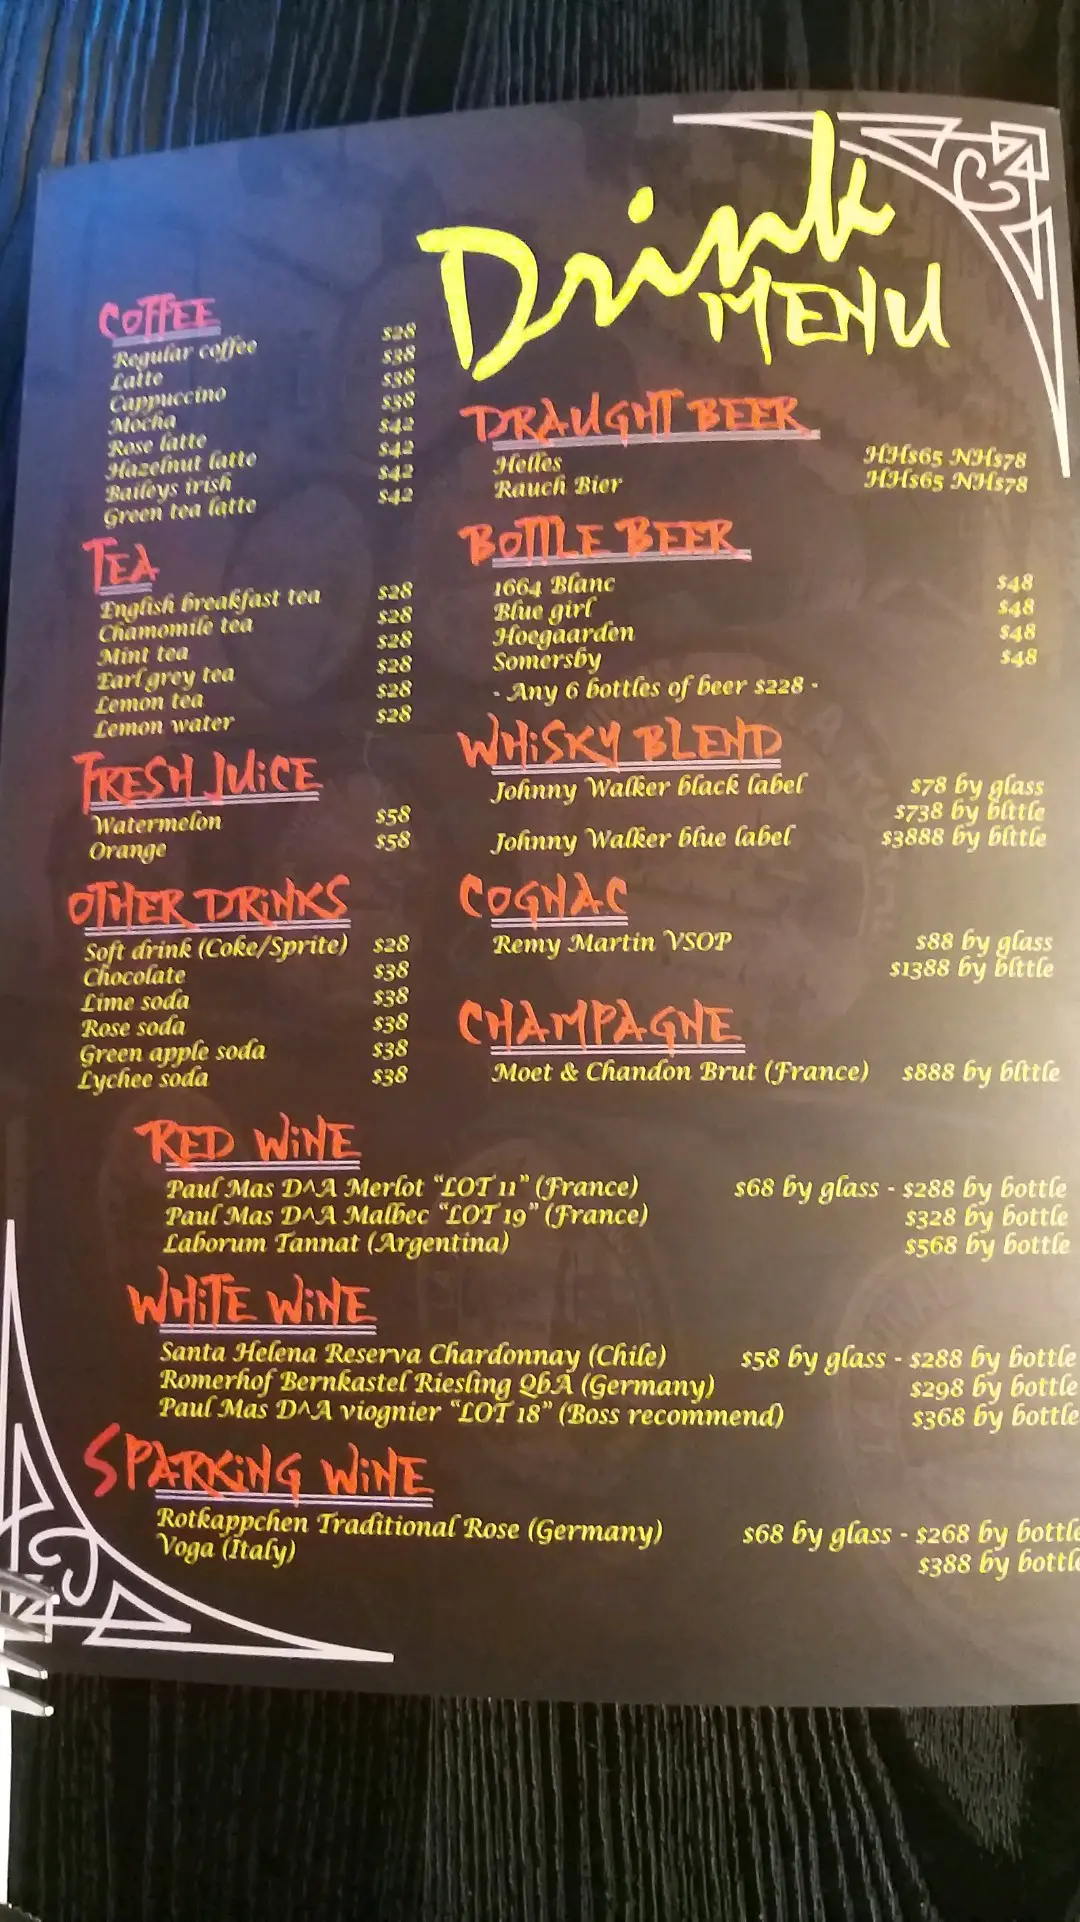 Drink
MENU
COFFEE
Regular coffee $28
Latte $38
Cappuccino $38
Mocha $38
Rose latte $42
Hazelnut latte $42
Baileys irish $42
Green tea latte $42
TEA
English breakfast tea $28
Chamomile tea $28
Mint tea $28
Earl grey tea $28
Lemon tea $28
Lemon water $28
FRESH JUiCE
Watermelon $58
Orange $58
OTHER DRiNKS
Soft drink (Coke/Sprite) $28
Chocolate $38
Lime soda $38
Rose soda $38
Green apple soda $38
Lychee soda $38
DRAUGHT BEER
Helles HH$65 NH$78
Rauch Bier HH$65 NH$78
BOTTLE BEER
1664 Blanc $48
Blue girl $48
Hoegaarden $48
Somersby $48
- Any 6 bottles of beer $228 -
WHiSKY BLEND
Johnny Walker black label $78 by glass
$738 by blttle
Johnny Walker blue label $3888 by blttle
COGNAC
Remy Martin VSOP $88 by glass
$1388 by blttle
CHAMPAGNE
Moet & Chandon Brut (France) $888 by blttle
RED WiNE
Paul Mas D^A Merlot “LOT 11” (France) $68 by glass - $288 by bottle
Paul Mas D^A Malbec “LOT 19” (France) $328 by bottle
Laborum Tannat (Argentina) $568 by bottle
WHiTE WiNE
Santa Helena Reserva Chardonnay (Chile) $58 by glass - $288 by bottle
Romerhof Bernkastel Riesling QbA (Germany) $298 by bottle
Paul Mas D^A viognier “LOT 18” (Boss recommend) $368 by bottle
SPARKiNG WiNE
Rotkappchen Traditional Rose (Germany) $68 by glass - $268 by bottle
Voga (Italy) $388 by bottle